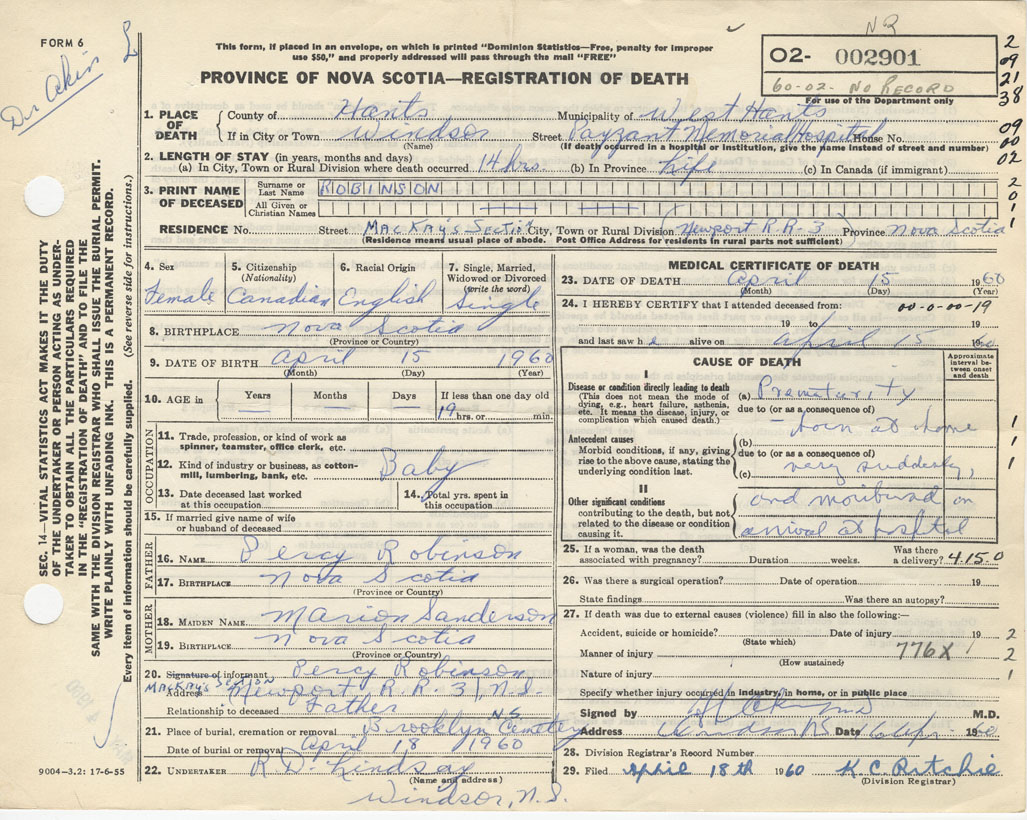 FORM 6
Dr Akin
This form, if placed in an envelope, on which is printed "Dominion Statistics—Free, penalty for improper
use $50," and properly addressed will pass through the mail "FREE"
PROVINCE OF NOVA SCOTIA—REGISTRATION OF DEATH
NR
02- 002901
60-02- NO RECORD
For use of the Department only
2
09
21
38
09
00
02
2
0
1
1. PLACE OF DEATH
County of Hants Municipality of West Hants
If in City or Town Windsor Street Payzant Memorial Hospital House No.
(Name) (If death occurred in a hospital or institution, give the name instead of street and number)
2. LENGTH OF STAY (in years, months and days)
(a) In City, Town or Rural Division where death occurred 14 hrs. (b) In Province Life (c) In Canada (if immigrant)
3. PRINT NAME OF DECEASED
Surname or Last Name ROBINSON
All Given or Christian Names
RESIDENCE No. Street MacKay's Section City, Town or Rural Division Newport R.R-3 Province Nova Scotia
(Residence means usual place of abode. Post Office Address for residents in rural parts not sufficient)
4. Sex 5. Citizenship (Nationality) 6. Racial Origin 7. Single, Married, Widowed or Divorced (write the word)
Female Canadian English Single
8. BIRTHPLACE Nova Scotia
(Province or Country)
9. DATE OF BIRTH April 15 1960
(Month) (Day) (Year)
10. AGE in Years Months Days If less than one day old
19 hrs. or min.
OCCUPATION
11. Trade, profession, or kind of work as
spinner, teamster, office clerk, etc.
12. Kind of industry or business, as cotton-
mill, lumbering, bank, etc. Baby
13. Date deceased last worked
at this occupation
14. Total yrs. spent in
this occupation
15. If married give name of wife
or husband of deceased
FATHER
16. NAME Percy Robinson
17. BIRTHPLACE Nova Scotia
(Province or Country)
MOTHER
18. MAIDEN NAME Marion Sanderson
19. BIRTHPLACE Nova Scotia
(Province or Country)
20. Signature of informant Percy Robinson
MacKay's Section
Address Newport R.R.3 N.S.
Relationship to deceased Father
21. Place of burial, cremation or removal Brooklyn N.S Cemetery
Date of burial or removal April 18 1960
22. UNDERTAKER R.D. Lindsay
(Name and address)
Windsor, N.S.
9004—3.2: 17-6-55
MEDICAL CERTIFICATE OF DEATH
23. DATE OF DEATH April 15 1960
(Month) (Day) (Year)
24. I HEREBY CERTIFY that I attended deceased from: 00-0-00-19
19 to 19
and last saw h e alive on April 15 1960
CAUSE OF DEATH
Approximate interval between onset and death
I
Disease or condition directly leading to death
(This does not mean the mode of
dying, e.g., heart failure, asthenia,
etc. It means the disease, injury, or
complication which caused death.)
(a) Prematurity
due to (or as a consequence of)
- born at home
Antecedent causes
Morbid conditions, if any, giving
rise to the above cause, stating the
underlying condition last.
(b)
due to (or as a consequence of)
very suddenly,
(c)
II
Other significant conditions
contributing to the death, but not
related to the disease or condition
causing it.
and moribund on
arrival at hospital
1
1
1
25. If a woman, was the death
associated with pregnancy? Duration weeks. Was there
a delivery? 4.15.0
26. Was there a surgical operation? Date of operation 19
State findings Was there an autopsy?
27. If death was due to external causes (violence) fill in also the following:—
Accident, suicide or homicide? Date of injury 19 2
(State which)
Manner of injury 776X 2
(How sustained)
Nature of injury 1
Specify whether injury occurred in industry, in home, or in public place
Signed by M.D.
Address Windsor Date 1960
28. Division Registrar's Record Number
29. Filed April 18th 1960 K.C. Ritchie
(Division Registrar)
SEC. 14—VITAL STATISTICS ACT MAKES IT THE DUTY
OF THE UNDERTAKER OR PERSON ACTING AS UNDER-
TAKER TO OBTAIN ALL THE PARTICULARS REQUIRED
IN THE "REGISTRATION OF DEATH" AND TO FILE THE
SAME WITH THE DIVISION REGISTRAR WHO SHALL ISSUE THE BURIAL PERMIT.
WRITE PLAINLY WITH UNFADING INK. THIS IS A PERMANENT RECORD.
Every item of information should be carefully supplied. (See reverse side for instructions.)